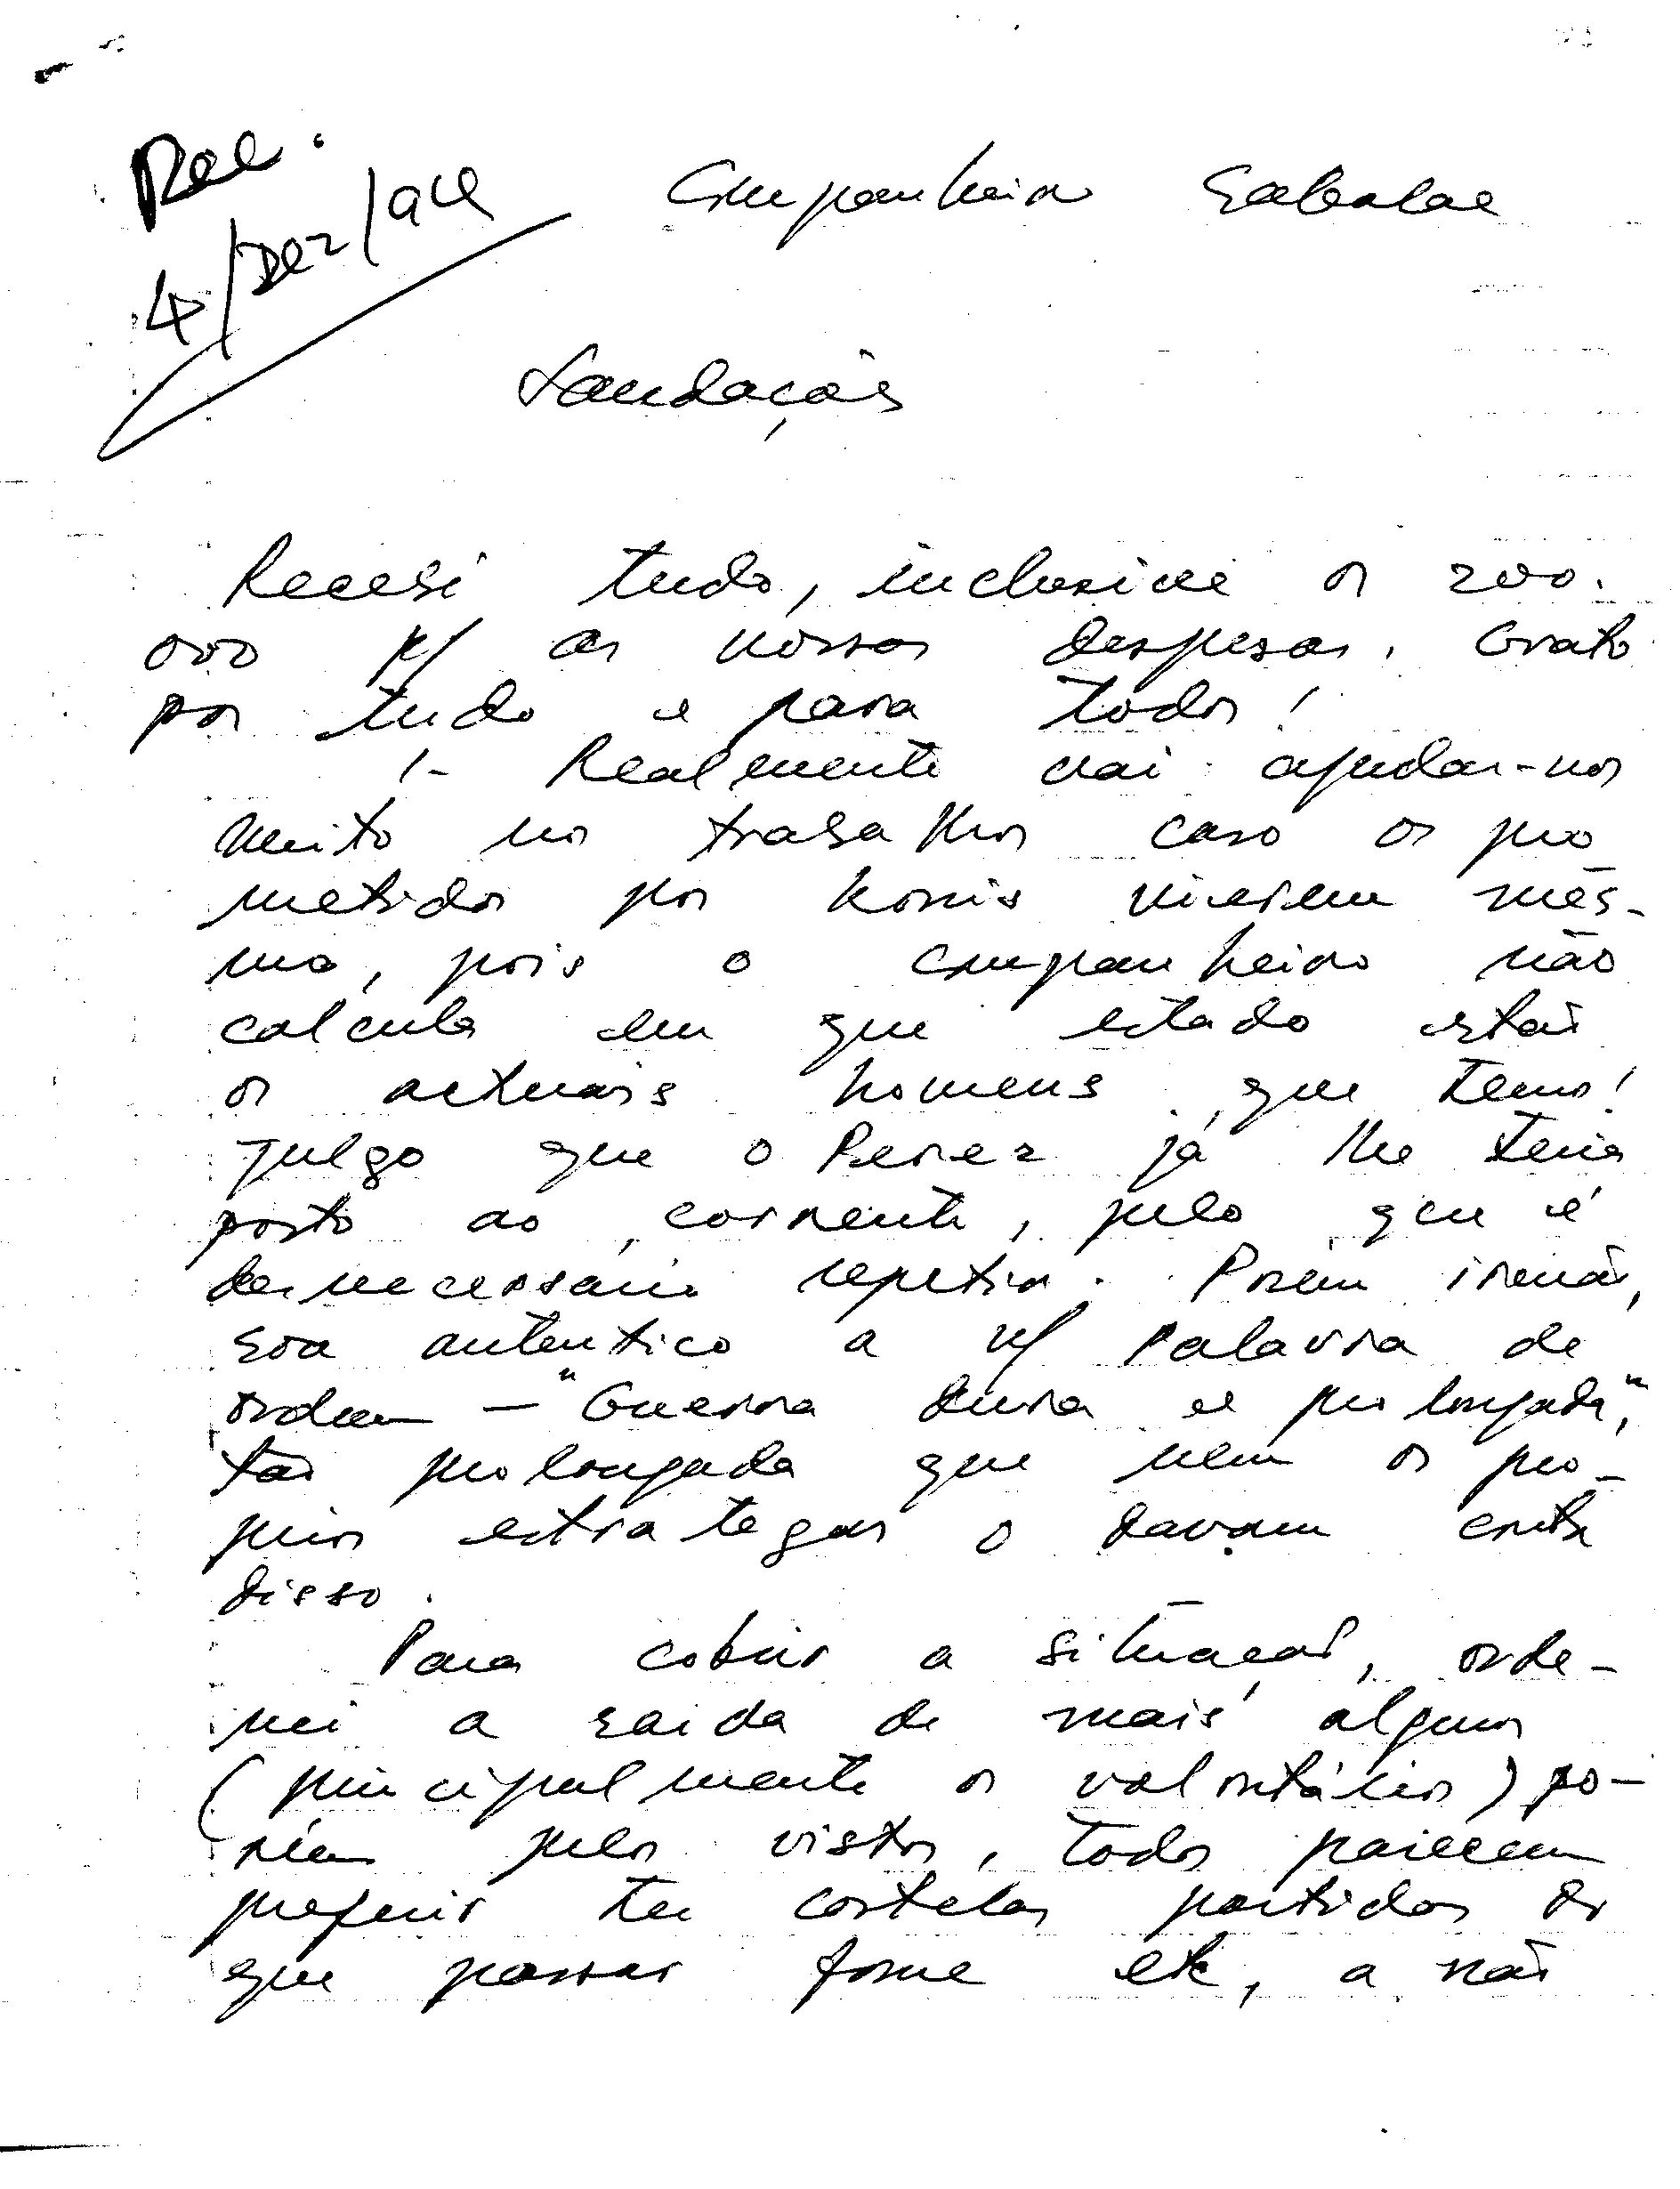 Rec.
4/Dez/
Companheiro
Saudações
Recebi tudo, inclusive os 200.
000 p/ as nossas despesas. Grato
por tudo e para todos!
1- Realmente vai ajudar-nos
muito nos trabalhos caso os pro
metidos por vierem mês-
mo, pois o companheiro não
calcula em que estado estão
os actuais homens que temos!
Julgo que o Perez já lhe teria
posto ao corrente, pelo que é
desnecessário repetir. Porém irmão,
soa autentico a n/ Palavra de
ordem - "Guerra dura e prolongada",
tão prolongada que nem os pró-
prios estrategas o davam conta
disso.
Para cobrir a situação, orde-
nei a saida de mais alguns
(principalmente os volontários) po-
rém pelos vistos, todos parecem
preferir ter costelas partidas do
que passar fome etc, a não